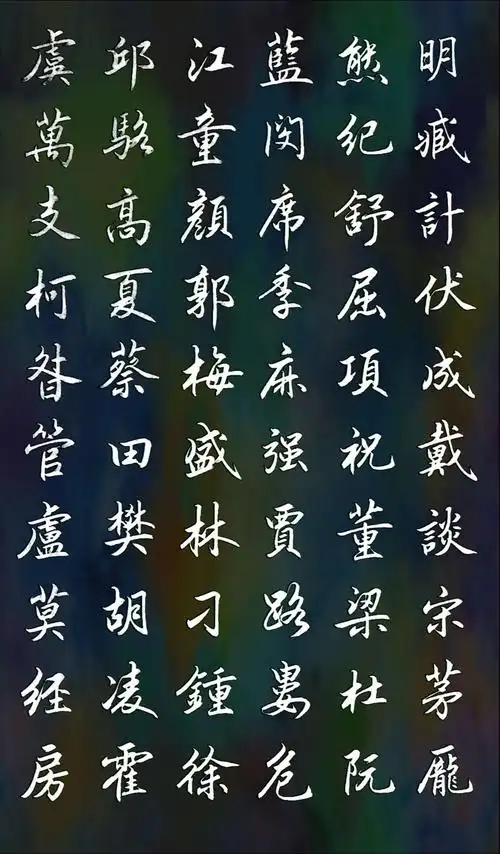 明臧計伏成戴談宋茅龐
熊紀舒屈項祝董梁杜阮
藍閔席季麻强賈路婁危
江童顔郭梅盛林刁鍾徐
邱駱高夏蔡田樊胡凌霍
虞萬支柯昝管盧莫経房